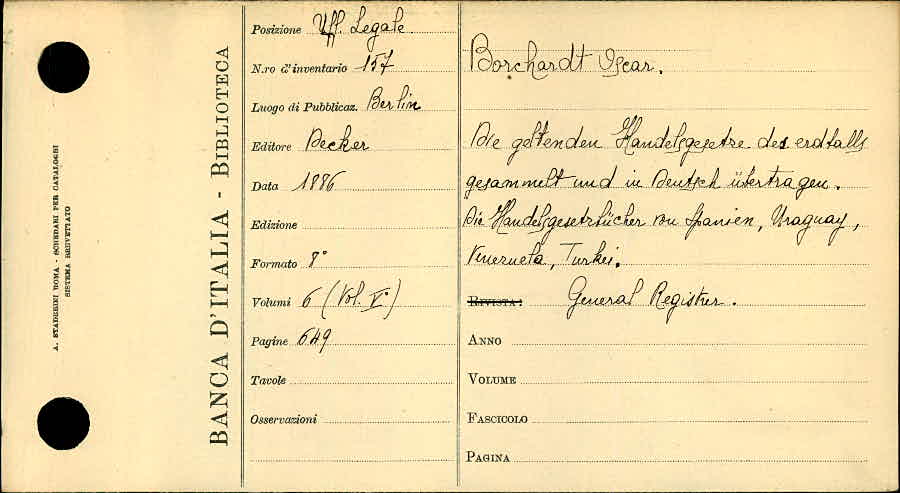 A. STADERINI ROMA - SCHEDARI PER CATALOGHI
SISTEMA BREVETTATO
BANCA D'ITALIA - BIBLIOTECA
Posizione Uff. Legale.
N.ro d'inventario 157
Luogo di Pubblicaz. Berlin
Editore Decker
Data 1886
Edizione
Formato 8°
Volumi 6 (Vol. V°)
Pagine 649
Tavole
Osservazioni
Borchardt Oscar.
Die geltenden Handelsgesetze des erdballs
gesammelt und in Deutsch übertragen.
Die Handelsgesetzbücher von Spanien, Uraguay,
Venezuela, Turkei.
RIVISTA: General Register.
ANNO
VOLUME
FASCICOLO
PAGINA